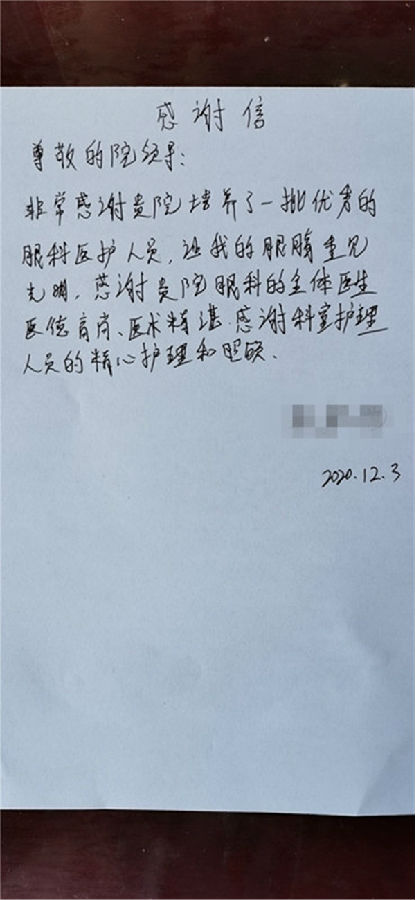 感谢信
尊敬的院领导：
非常感谢贵院培养了一批优秀的
眼科医护人员，让我的眼睛重见
光明。感谢贵院眼科的主体医生
医德高尚、医术精湛.感谢科室护理
人员的精心护理和照顾.
2020.12.3